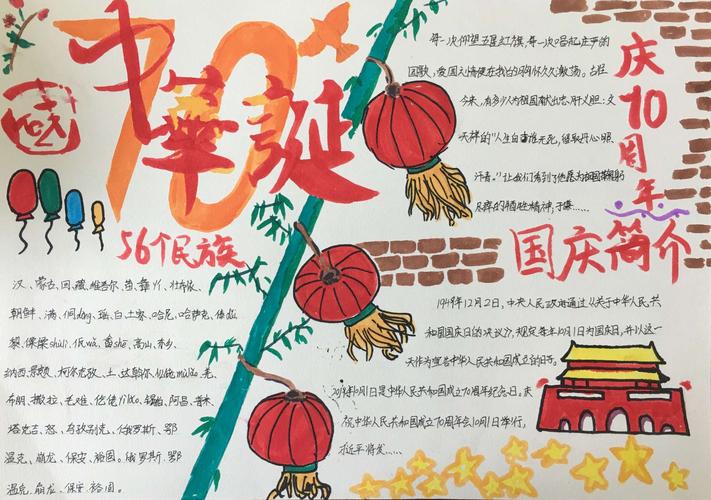 70
中華誕
56个民族
汉、蒙古、回、藏、维吾尔、苗、彝
朝鲜、满、侗dòng、瑶、白、土家、哈尼、哈萨克、傣
黎、傈僳sù、佤wǎ、畲shē、高山、
纳西、景颇、柯尔克孜、土、达斡尔、仫佬mùlǎo、羌、
布朗、撒拉、毛难、仡佬、锡伯、阿昌、普米、
塔吉克、怒、乌孜别克、俄罗斯、鄂
温克、崩龙、保安、裕固。俄罗斯、鄂
温克、崩龙、保安、裕固。
每一次仰望五星红旗,每一次唱起庄严的
国歌,爱国之情便在我的胸怀久久激荡。古往
今来,有多少人为祖国献出忠肝义胆:文
天祥的"人生自古谁无死,留取丹心照
汗青。"让我们看到了他愿为
的牺牲精神,于谦……
庆70周年
国庆简介
1949年12月2日,中央人民政府通过《关于中华人民共
和国国庆日的决议》,规定每年10月1日为国庆日,并以这一
天作为宣告中华人民共和国成立的日子。
2019年10月1日是中华人民共和国成立70周年纪念日。庆
祝中华人民共和国成立70周年会10月1日举行,
习近平将发……